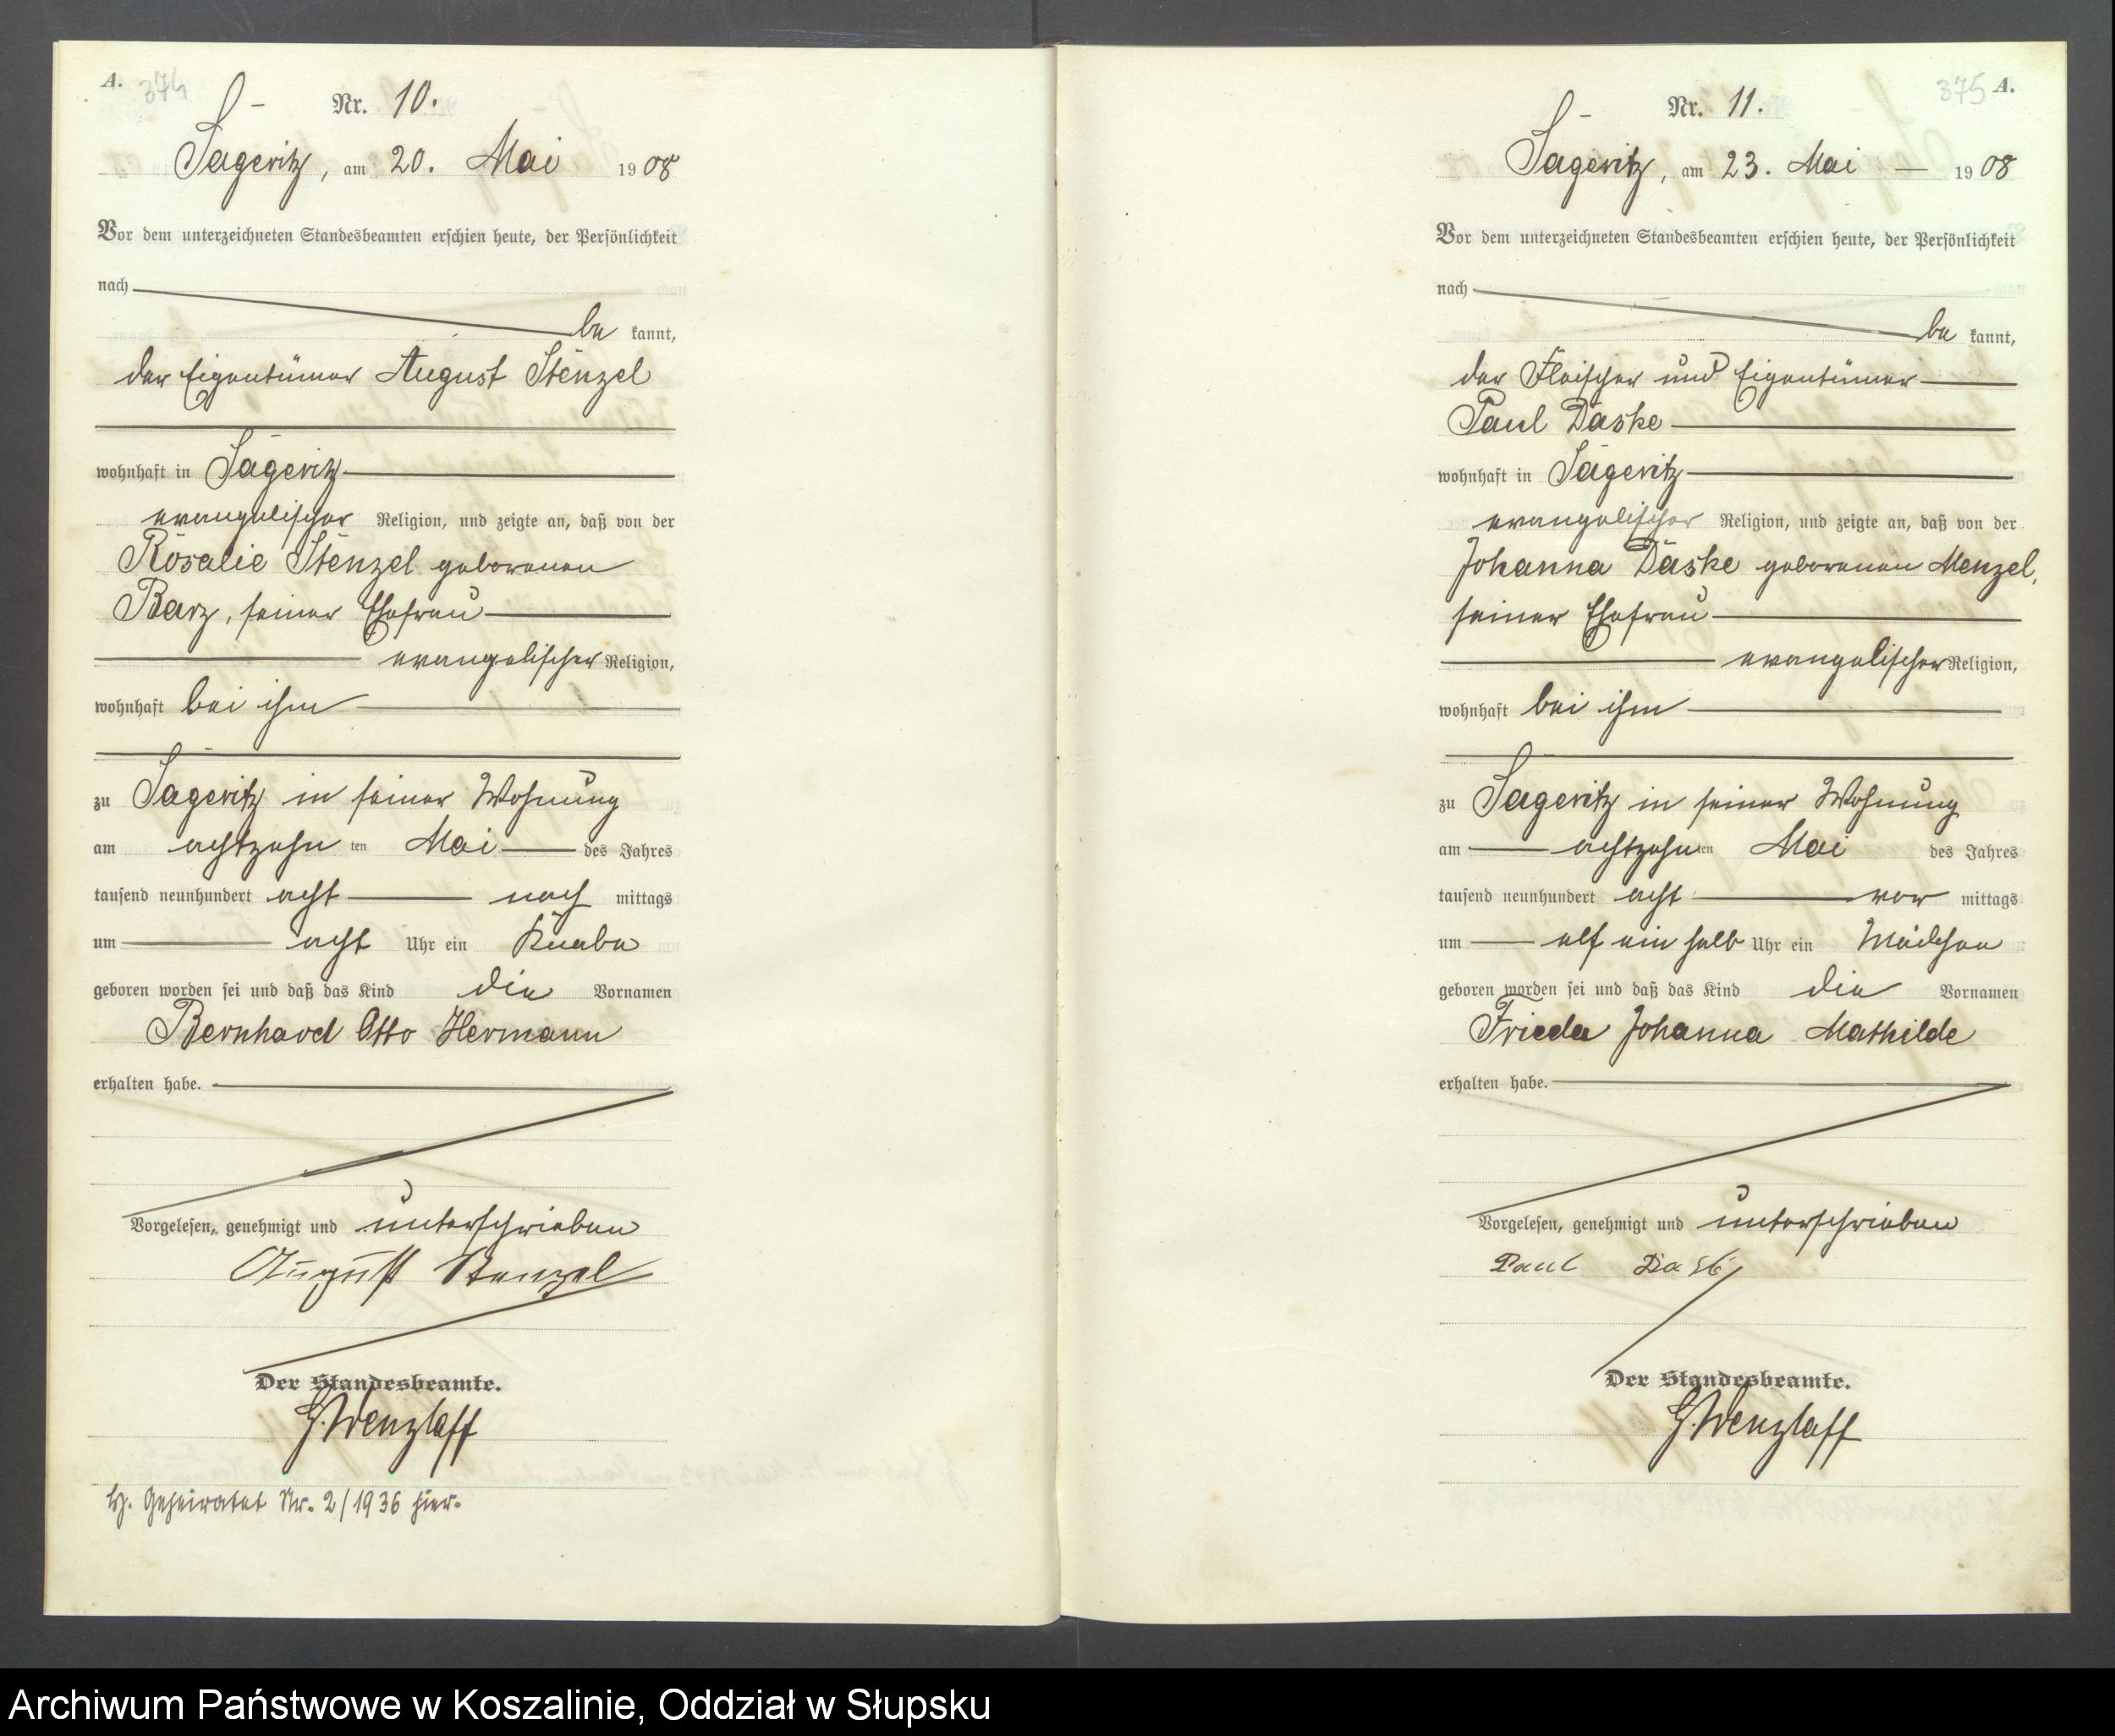 A. 374
Nr. 10.
Sageritz, am 20. Mai 1908
Vor dem unterzeichneten Standesbeamten erschien heute, der Persönlichkeit
nach
be kannt,
der Eigentümer August Stenzel
wohnhaft in Sageritz
evangelischer Religion, und zeigte an, daß von der
Rosalie Stenzel geborenen
Barz, seiner Ehefrau
evangelischer Religion,
wohnhaft bei ihm
zu Sageritz in seiner Wohnung
am achtzehn ten Mai des Jahres
tausend neunhundert acht nach mittags
um acht Uhr ein Knabe
geboren worden sei und daß das Kind die Vornamen
Bernhard Otto Hermann
erhalten habe.
Vorgelesen, genehmigt und unterschrieben
August Stenzel
Der Standesbeamte.
G. Wenzlaff
Geheiratet Nr. 2/1936 hier.
375 A.
Nr. 11.
Sageritz, am 23. Mai 1908
Vor dem unterzeichneten Standesbeamten erschien heute, der Persönlichkeit
nach
be kannt,
der Fleischer und Eigentümer
Paul Daske
wohnhaft in Sageritz
evangelischer Religion, und zeigte an, daß von der
Johanna Daske geborenen Menzel,
seiner Ehefrau
evangelischer Religion,
wohnhaft bei ihm
zu Sageritz in seiner Wohnung
am achtzehn ten Mai des Jahres
tausend neunhundert acht vor mittags
um elf ein halb Uhr ein Mädchen
geboren worden sei und daß das Kind die Vornamen
Frieda Johanna Mathilde
erhalten habe.
Vorgelesen, genehmigt und unterschrieben
Paul Daske
Der Standesbeamte.
G. Wenzlaff
Archiwum Państwowe w Koszalinie, Oddział w Słupsku